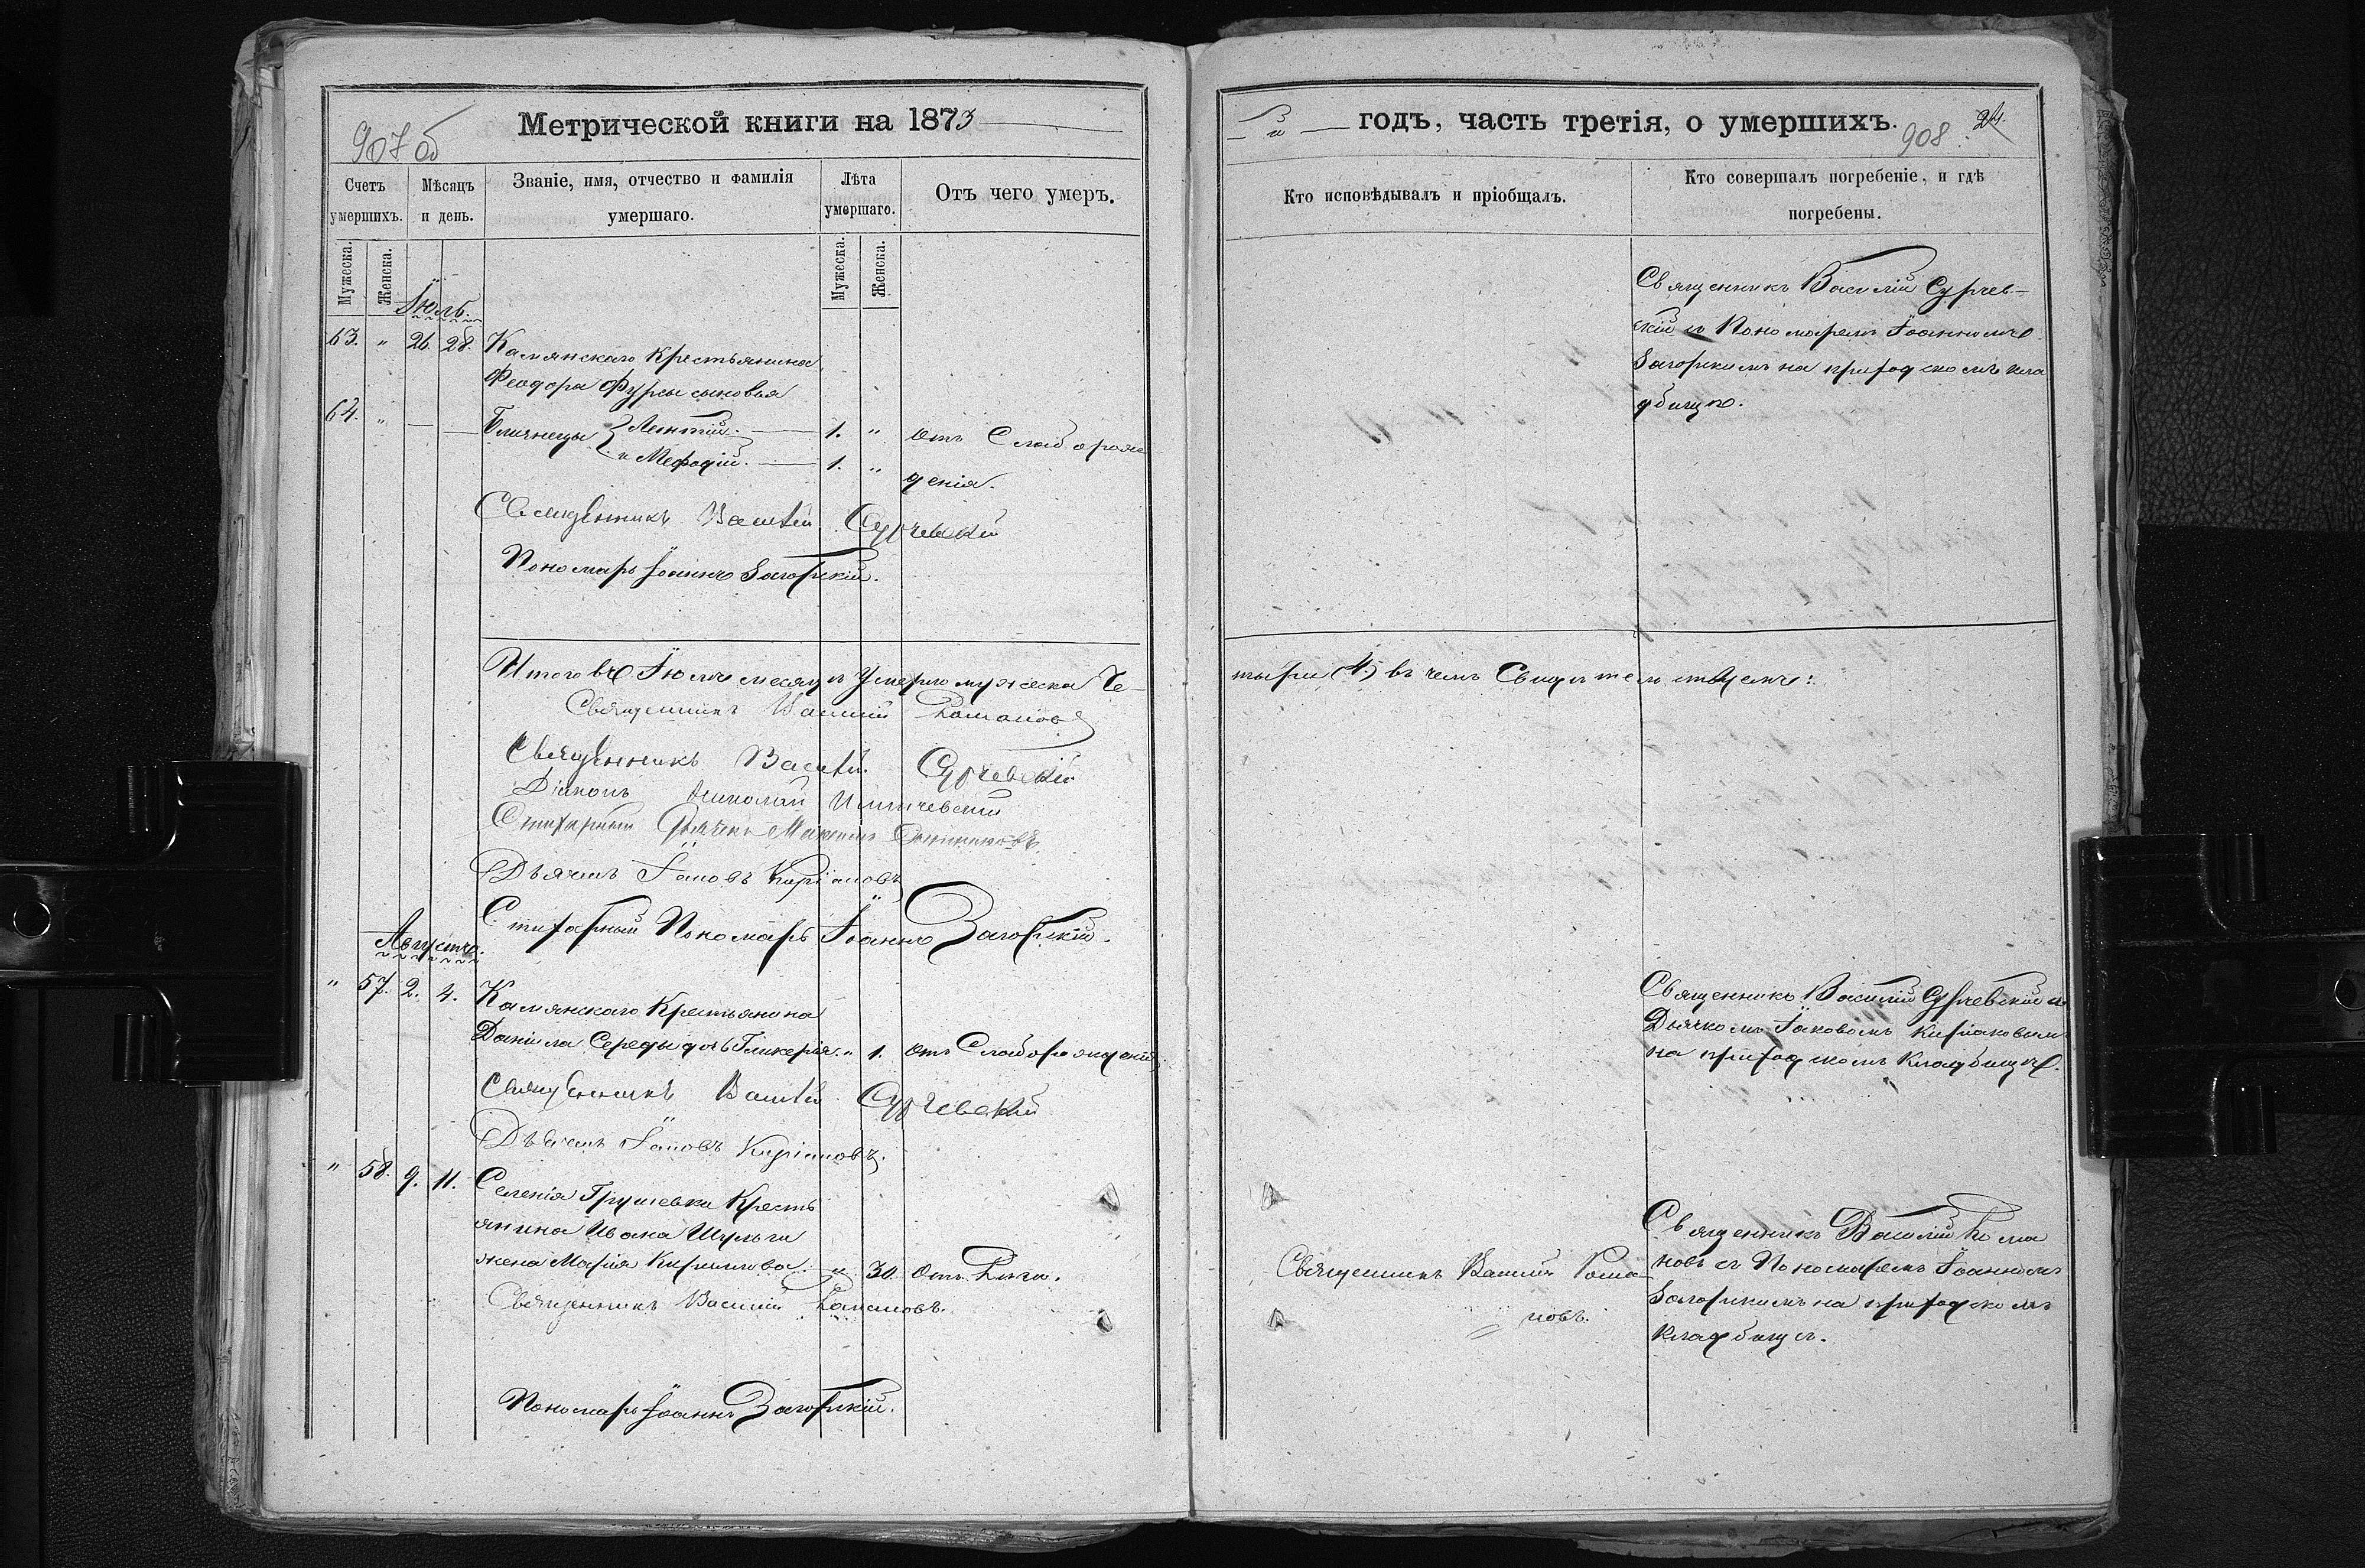 Метрической книги на 1873
907 об
Счетъ умершихъ.
Мѣсяцъ и день.
Званіе, имя, отчество и фамилія умершаго.
Лѣта умершаго.
Отъ чего умеръ.
Мужеска.
Женска.
Мужеска.
Женска.
Іюль.
63. " 26. 28. Камянскаго Крестьянина
Феодора Фурсы сыновья
64. " — — Близнецы Леонтій. — 1. " отъ Слаборож
и Мефодій. — 1. " денія.
Священникъ Василій Сурчевскій
Пономарь Іоаннъ Загорскій.
Итого въ Іюлѣ месяцѣ умерло мужеска Че-
Священникъ Василій Романовъ
Священникъ Василій Сурчевскій
Діаконъ Николай
Стихарный Дьячекъ Максимъ
Дьячекъ Іаковъ Киріаковъ
Стихарный Пономарь Іоаннъ Загорскій.
Августъ.
" 57. 2. 4. Камянскаго Крестьянина
Даніила Середы дочь Гликерія. " 1. отъ Слаборожденія
Священникъ Василій Сурчевскій
Дьячекъ Іаковъ Киріаковъ.
" 58. 9. 11. Селенія Грушевки Кресть
янина Ивана Шульги
жена Марія Кирилова. — " 30. отъ
Священникъ Василій Романовъ.
Пономарь Іоаннъ Загорскій.
й — годъ, часть третія, о умершихъ.
908
24.
Кто исповѣдывалъ и пріобщалъ.
Кто совершалъ погребеніе, и гдѣ погребены.
Священникъ Василій Сурчев-
скій съ Пономаремъ Іоанномъ
Загорскимъ на приходскомъ кла
дбищѣ.
тыри (4) въ чемъ Свидѣтельствуемъ:
Священникъ Василій Сурчевскій съ
Дьячкомъ Іаковомъ Киріаковымъ
на приходскомъ Кладбищѣ.
Священникъ Василій Рома
новъ.
Священникъ Василій Рома
новъ съ Пономаремъ Іоанномъ
Загорскимъ на приходскомъ
Кладбищѣ.